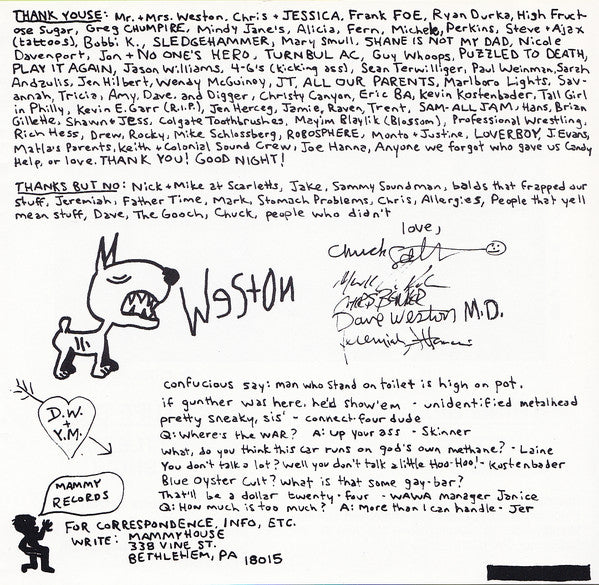 THANK YOUSE: Mr. + Mrs. Weston, Chris + JESSICA, Frank FOE, Ryan Durka, High Fruct-
ose Sugar, Greg CHUMPIRE, Mindy Jane's, Alicia, Fern, Michele, Perkins, Steve + Ajax
(tattoos), Bobbi K., SLEDGEHAMMER, Mary Smull, SHANE IS NOT MY DAD, Nicole
Davenport, Jon + NO ONE'S HERO, TURNBUL AC, Guy Whoops, PUZZLED TO DEATH,
PLAY IT AGAIN, Jason Williams, 4-G's (kicking ass), Sean Terwilliger, Paul Weinman, Sarah
Andzulis, Jen Hilbert, Wendy McGuinoy, JT, ALL OUR PARENTS, Marlboro Lights, Sav-
annah, Tricia, Amy, Dave and Digger, Christy Canyon, Eric BA, Kevin Kostenbader, Tall Girl
in Philly, Kevin E. Garr (R.I.P.), Jen Herceg, Jamie, Raven, Trent, SAM-ALL JAM, Hans, Brian
Gillette, Shawn + Jess, Colgate Toothbrushes, Mayim Blaylik (Blossom), Professional Wrestling,
Rich Hess, Drew, Rocky, Mike Schlossberg, ROBOSPHERE, Monto + Justine, LOVERBOY, J. Evans,
Matla's Parents, Keith + Colonial Sound Crew, Joe Hanna, Anyone we forgot who gave us Candy
Help, or love. THANK YOU! GOOD NIGHT!
THANKS BUT NO: Nick + Mike at Scarletts, Jake, Sammy Soundman, balds that frapped our
stuff, Jeremiah, Father Time, Mark, Stomach Problems, Chris, Allergies, People that yell
mean stuff, Dave, The Gooch, Chuck, people who didn't
love,
Chuck
CHRIS
Dave Weston M.D.
Jeremiah
Weston
confucious say: man who stand on toilet is high on pot.
if gunther was here, he'd show'em - unidentified metalhead
pretty sneaky, sis' - connect four dude
Q: Where's the WAR? A: up your ass - Skinner
What, do you think this car runs on god's own methane? - Laine
You don't talk a lot? Well you don't talk a little Hoo-Hoo! - Kostenbader
Blue Oyster Cult? What is that some gay-bar?
That'll be a dollar twenty-four - WAWA manager Janice
Q: How much is too much? A: More than I can handle - Jer
D.W.
+
Y.M.
MAMMY
RECORDS
FOR CORRESPONDENCE, INFO, ETC.
WRITE: MAMMYHOUSE
338 VINE ST.
BETHLEHEM, PA 18015